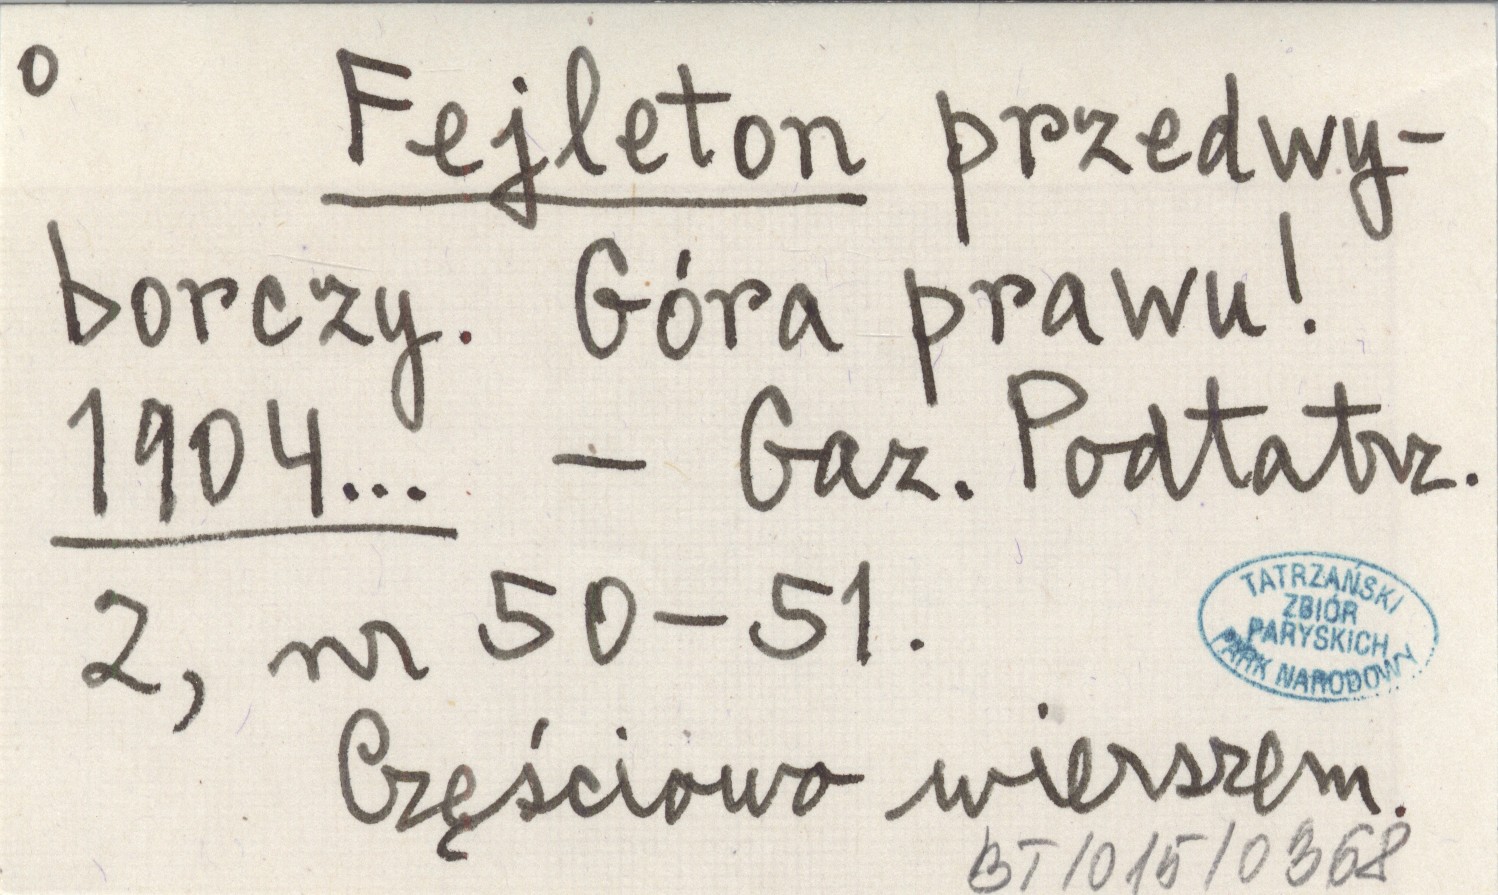 o Fejleton przedwy-
borczy. Góra prawu!
1904... — Gaz. Podtatrz.
2, nr 50-51.
TATRZAŃSKI
ZBIÓR
PARYSKICH
PARK NARODOWY
Częściowo wierszem.
BT/015/0368